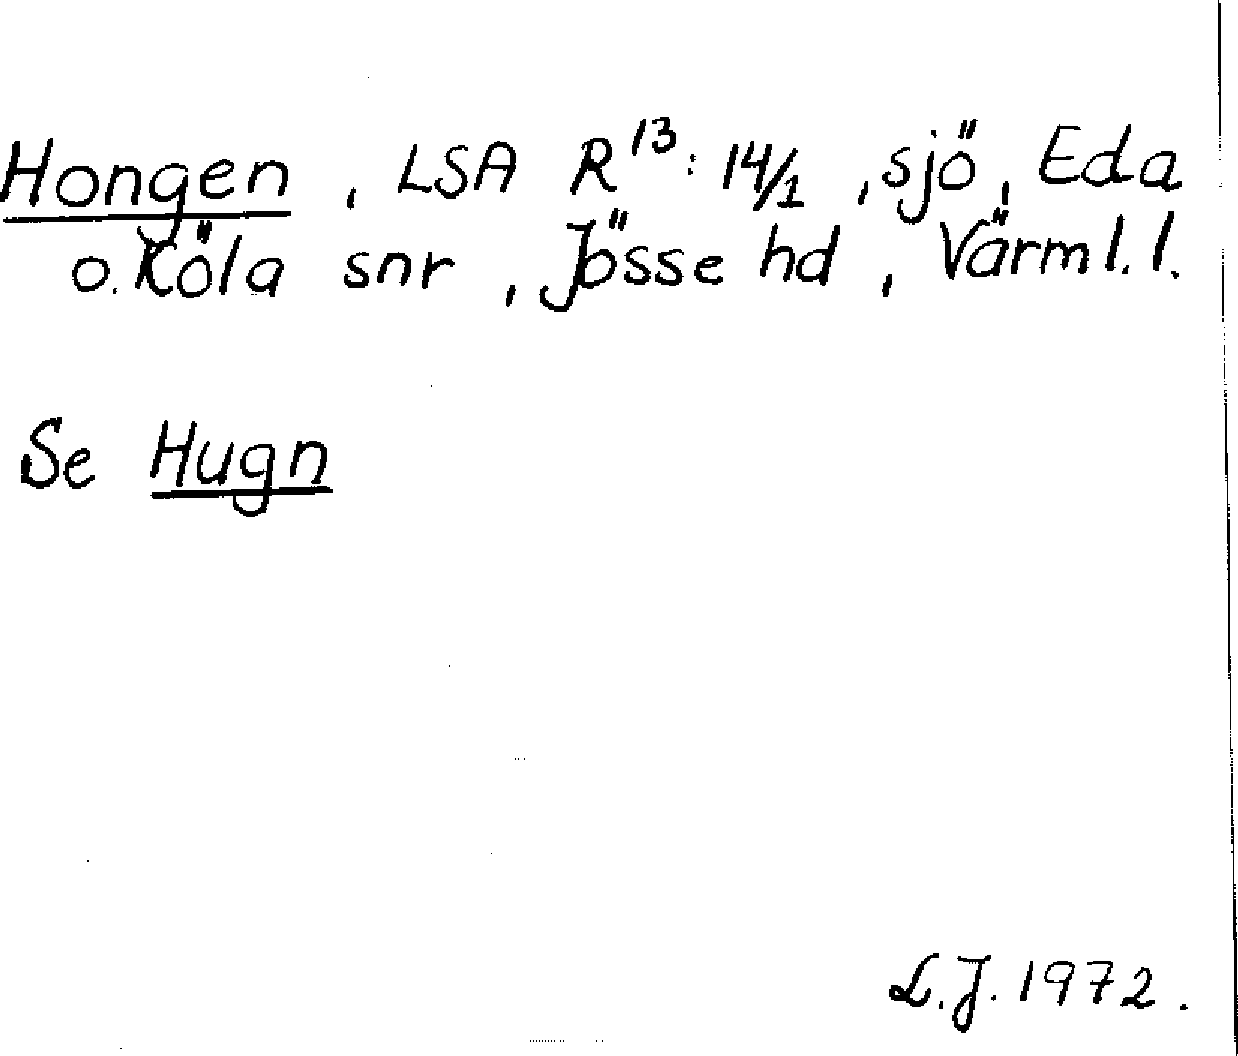 Hongen, LSA R¹³: 14/1, sjö, Eda
o. Köla snr, Jösse hd, Värml. l.
Se Hugn
L.J. 1972.